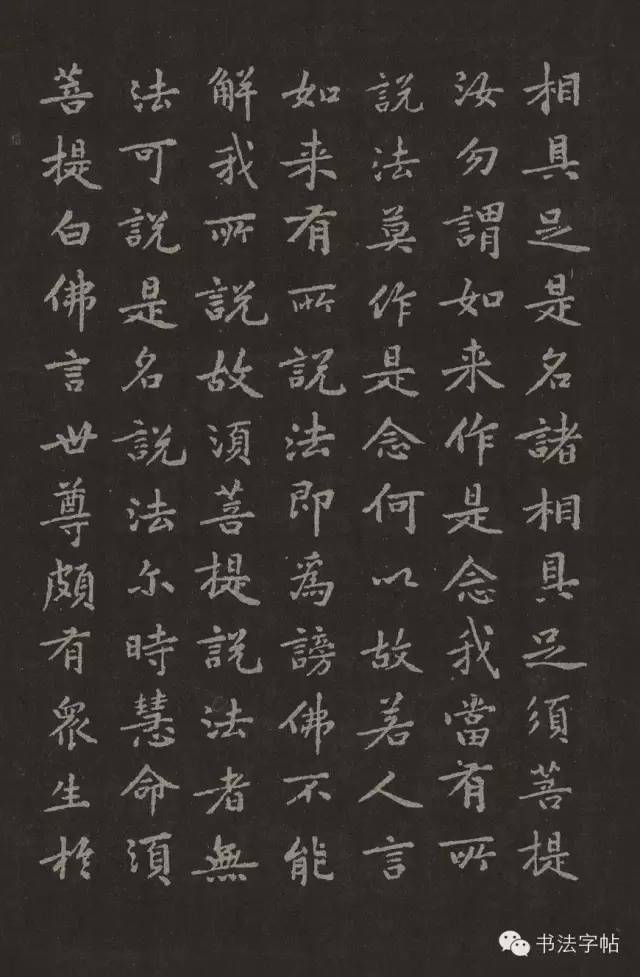 相具足是名諸相具足須菩提
汝勿謂如来作是念我當有所
說法莫作是念何以故若人言
如来有所說法即為謗佛不能
解我所說故須菩提說法者無
法可說是名說法尒時慧命須
菩提白佛言世尊頗有眾生於
书法字帖